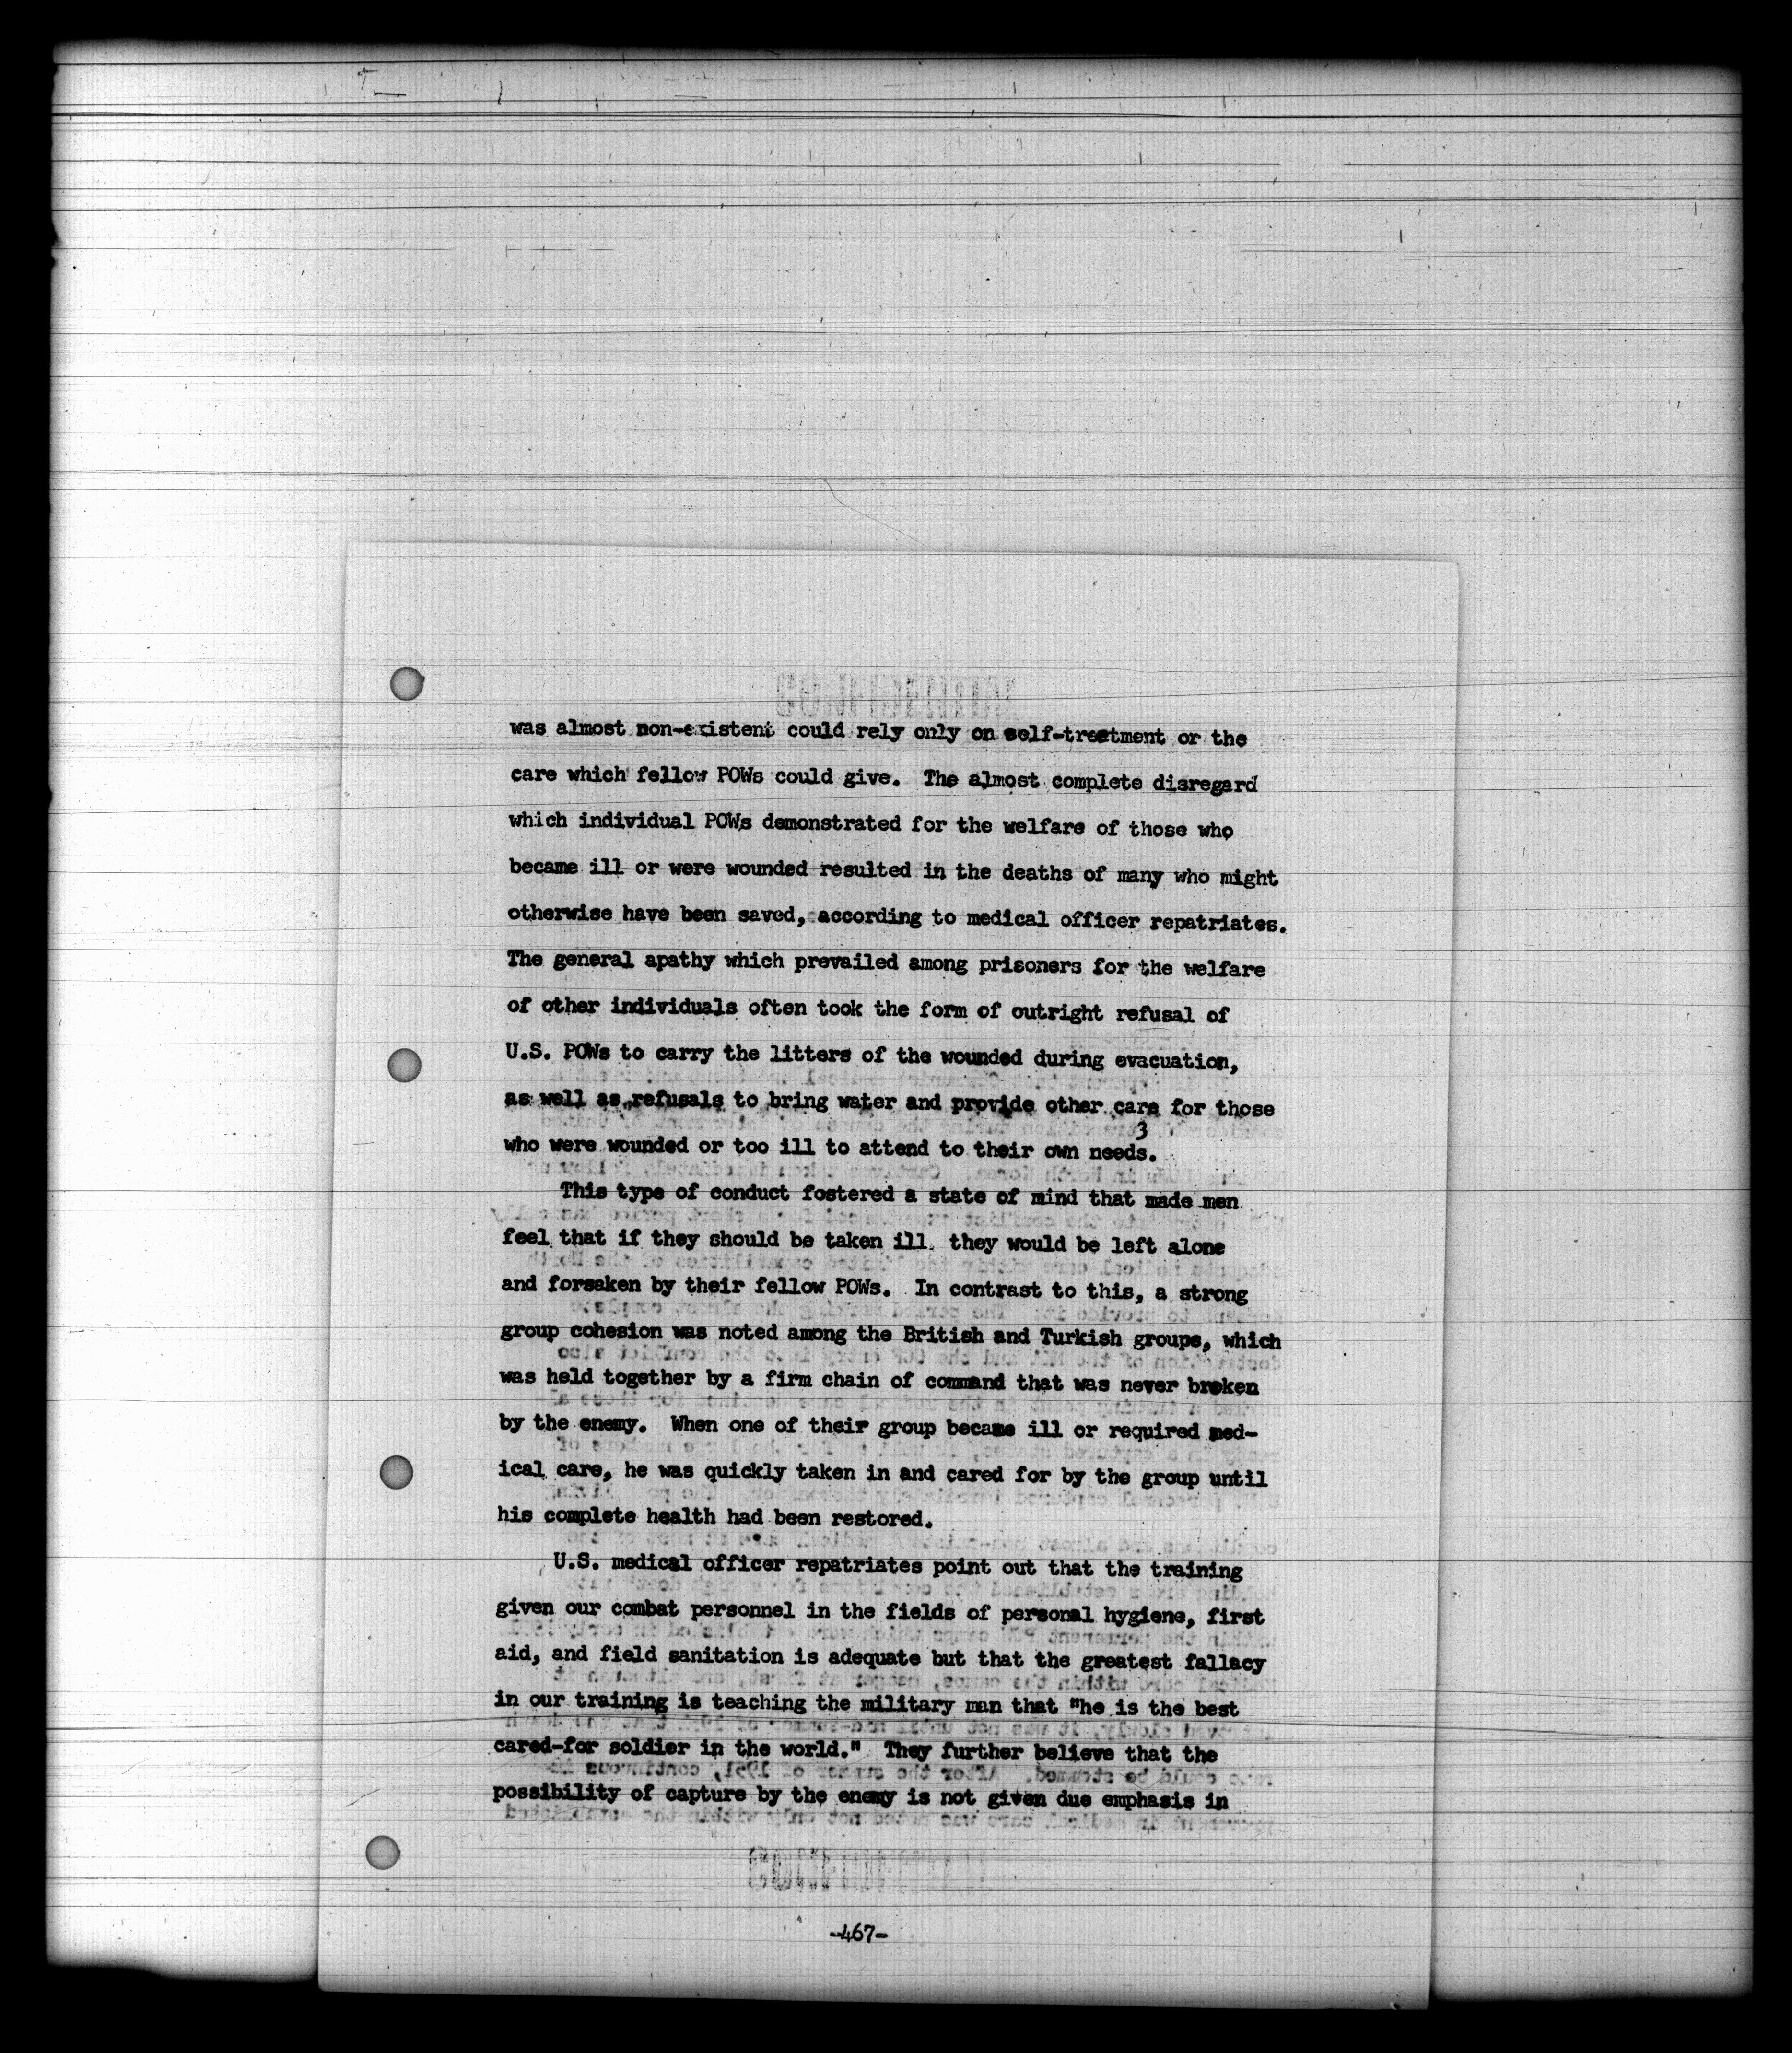 was almost non-existent could rely only on self-treatment or the
care which fellow POWs could give. The almost complete disregard
which individual POWs demonstrated for the welfare of those who
became ill or were wounded resulted in the deaths of many who might
otherwise have been saved, according to medical officer repatriates.
The general apathy which prevailed among prisoners for the welfare
of other individuals often took the form of outright refusal of
U.S. POWs to carry the litters of the wounded during evacuation,
as well as refusals to bring water and provide other care for those
who were wounded or too ill to attend to their own needs.3
This type of conduct fostered a state of mind that made men
feel that if they should be taken ill they would be left alone
and forsaken by their fellow POWs. In contrast to this, a strong
group cohesion was noted among the British and Turkish groups, which
was held together by a firm chain of command that was never broken
by the enemy. When one of their group became ill or required med-
ical care, he was quickly taken in and cared for by the group until
his complete health had been restored.
U.S. medical officer repatriates point out that the training
given our combat personnel in the fields of personal hygiene, first
aid, and field sanitation is adequate but that the greatest fallacy
in our training is teaching the military man that "he is the best
cared-for soldier in the world." They further believe that the
possibility of capture by the enemy is not given due emphasis in
-467-